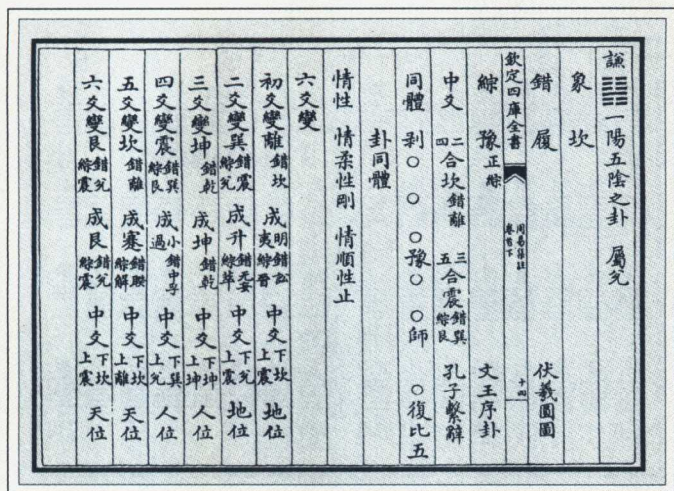 謙䷎一陽五陰之卦 屬兌
象 坎
錯 履 伏羲圓圖
欽定四庫全書 周易集註 卷首下 十四
綜 豫正綜 文王序卦
中爻 二四合坎錯離 三五合震錯巽綜艮 孔子繫辭
同體 剝○ ○ ○豫○ ○師 ○復比五
卦同體
情性 情柔性剛 情順性止
六爻變
初爻變離錯坎 成明夷錯訟綜晉 中爻下坎上震 地位
二爻變巽錯震綜兌 成升錯无妄綜萃 中爻下兌上震 地位
三爻變坤錯乾 成坤錯乾 中爻下坤上坤 人位
四爻變震錯巽綜艮 成小過錯中孚 中爻下巽上兌 人位
五爻變坎錯離 成蹇錯睽綜解 中爻下坎上離 天位
六爻變艮錯兌綜震 成艮錯兌綜震 中爻下坎上震 天位